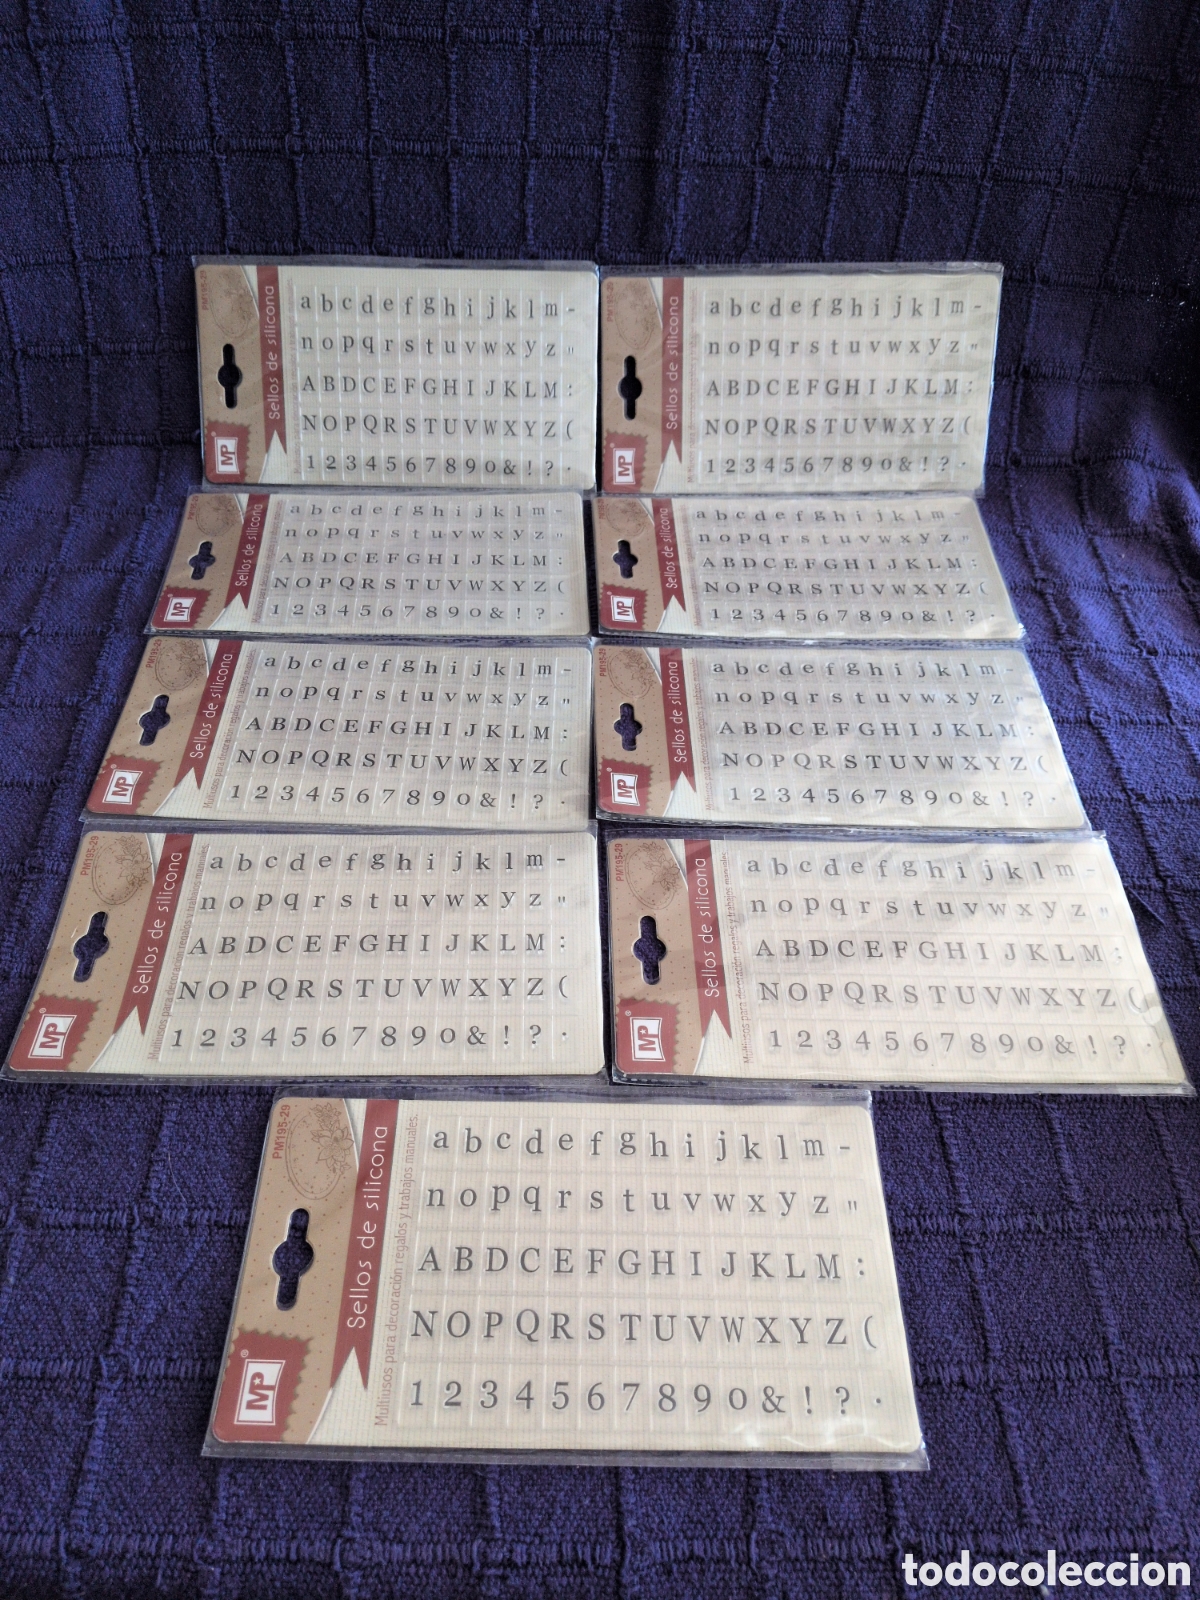 PM195-29
Sellos de silicona
MP®
a b c d e f g h i j k l m -
n o p q r s t u v w x y z "
A B D C E F G H I J K L M :
N O P Q R S T U V W X Y Z (
1 2 3 4 5 6 7 8 9 0 & ! ? .
PM195-29
Sellos de silicona
MP®
a b c d e f g h i j k l m -
n o p q r s t u v w x y z "
A B D C E F G H I J K L M :
N O P Q R S T U V W X Y Z (
1 2 3 4 5 6 7 8 9 0 & ! ? .
Sellos de silicona
MP®
a b c d e f g h i j k l m -
n o p q r s t u v w x y z "
A B D C E F G H I J K L M :
N O P Q R S T U V W X Y Z (
1 2 3 4 5 6 7 8 9 0 & ! ? .
Sellos de silicona
MP®
a b c d e f g h i j k l m -
n o p q r s t u v w x y z "
A B D C E F G H I J K L M :
N O P Q R S T U V W X Y Z (
1 2 3 4 5 6 7 8 9 0 & ! ? .
PM195-29
Sellos de silicona
Multiusos para decoración regalos y trabajos manuales.
MP®
a b c d e f g h i j k l m -
n o p q r s t u v w x y z "
A B D C E F G H I J K L M :
N O P Q R S T U V W X Y Z (
1 2 3 4 5 6 7 8 9 0 & ! ? .
PM195-29
Sellos de silicona
Multiusos para decoración regalos y trabajos manuales.
MP®
a b c d e f g h i j k l m -
n o p q r s t u v w x y z "
A B D C E F G H I J K L M :
N O P Q R S T U V W X Y Z (
1 2 3 4 5 6 7 8 9 0 & ! ? .
PM195-29
Sellos de silicona
Multiusos para decoración regalos y trabajos manuales.
MP®
a b c d e f g h i j k l m -
n o p q r s t u v w x y z "
A B D C E F G H I J K L M :
N O P Q R S T U V W X Y Z (
1 2 3 4 5 6 7 8 9 0 & ! ? .
PM195-29
Sellos de silicona
Multiusos para decoración regalos y trabajos manuales.
MP®
a b c d e f g h i j k l m -
n o p q r s t u v w x y z "
A B D C E F G H I J K L M :
N O P Q R S T U V W X Y Z (
1 2 3 4 5 6 7 8 9 0 & ! ? .
PM195-29
Sellos de silicona
Multiusos para decoración regalos y trabajos manuales.
MP®
a b c d e f g h i j k l m -
n o p q r s t u v w x y z "
A B D C E F G H I J K L M :
N O P Q R S T U V W X Y Z (
1 2 3 4 5 6 7 8 9 0 & ! ? .
todocoleccion